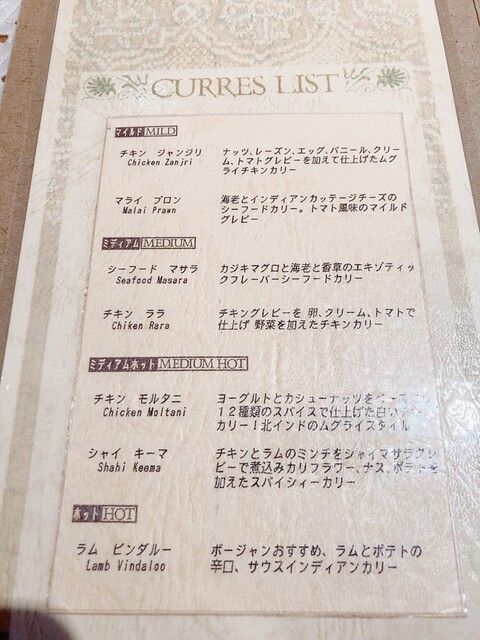 CURRES LIST
マイルド MILD
チキン ジャンジリ
Chicken Zanjri
ナッツ、レーズン、エッグ、パニール、クリー
ム、トマトグレビーを加えて仕上げたムグ
ライチキンカリー
マライ プロン
Malai Prawn
海老とインディアンカッテージチーズの
シーフードカリー。トマト風味のマイルド
グレビー
ミディアム MEDIUM
シーフード マサラ
Seafood Masara
カジキマグロと海老と香草のエキゾティッ
クフレーバーシーフードカリー
チキン ララ
Chiken Rara
チキングレビーを 卵、クリーム、トマトで
仕上げ 野菜を加えたチキンカリー
ミディアムホット MEDIUM HOT
チキン モルタニ
Chicken Moltani
ヨーグルトとカシューナッツをベースに
12種類のスパイスで仕上げた白い
カリー！北インドのムグライスタイル
シャイ キーマ
Shahi Keema
チキンとラムのミンチをシャイマサラグレ
ビーで煮込みカリフラワー、ナス、ポテトを
加えたスパイシィーカリー
ホット HOT
ラム ビンダルー
Lamb Vindaloo
ボージャンおすすめ、ラムとポテトの
辛口、サウスインディアンカリー